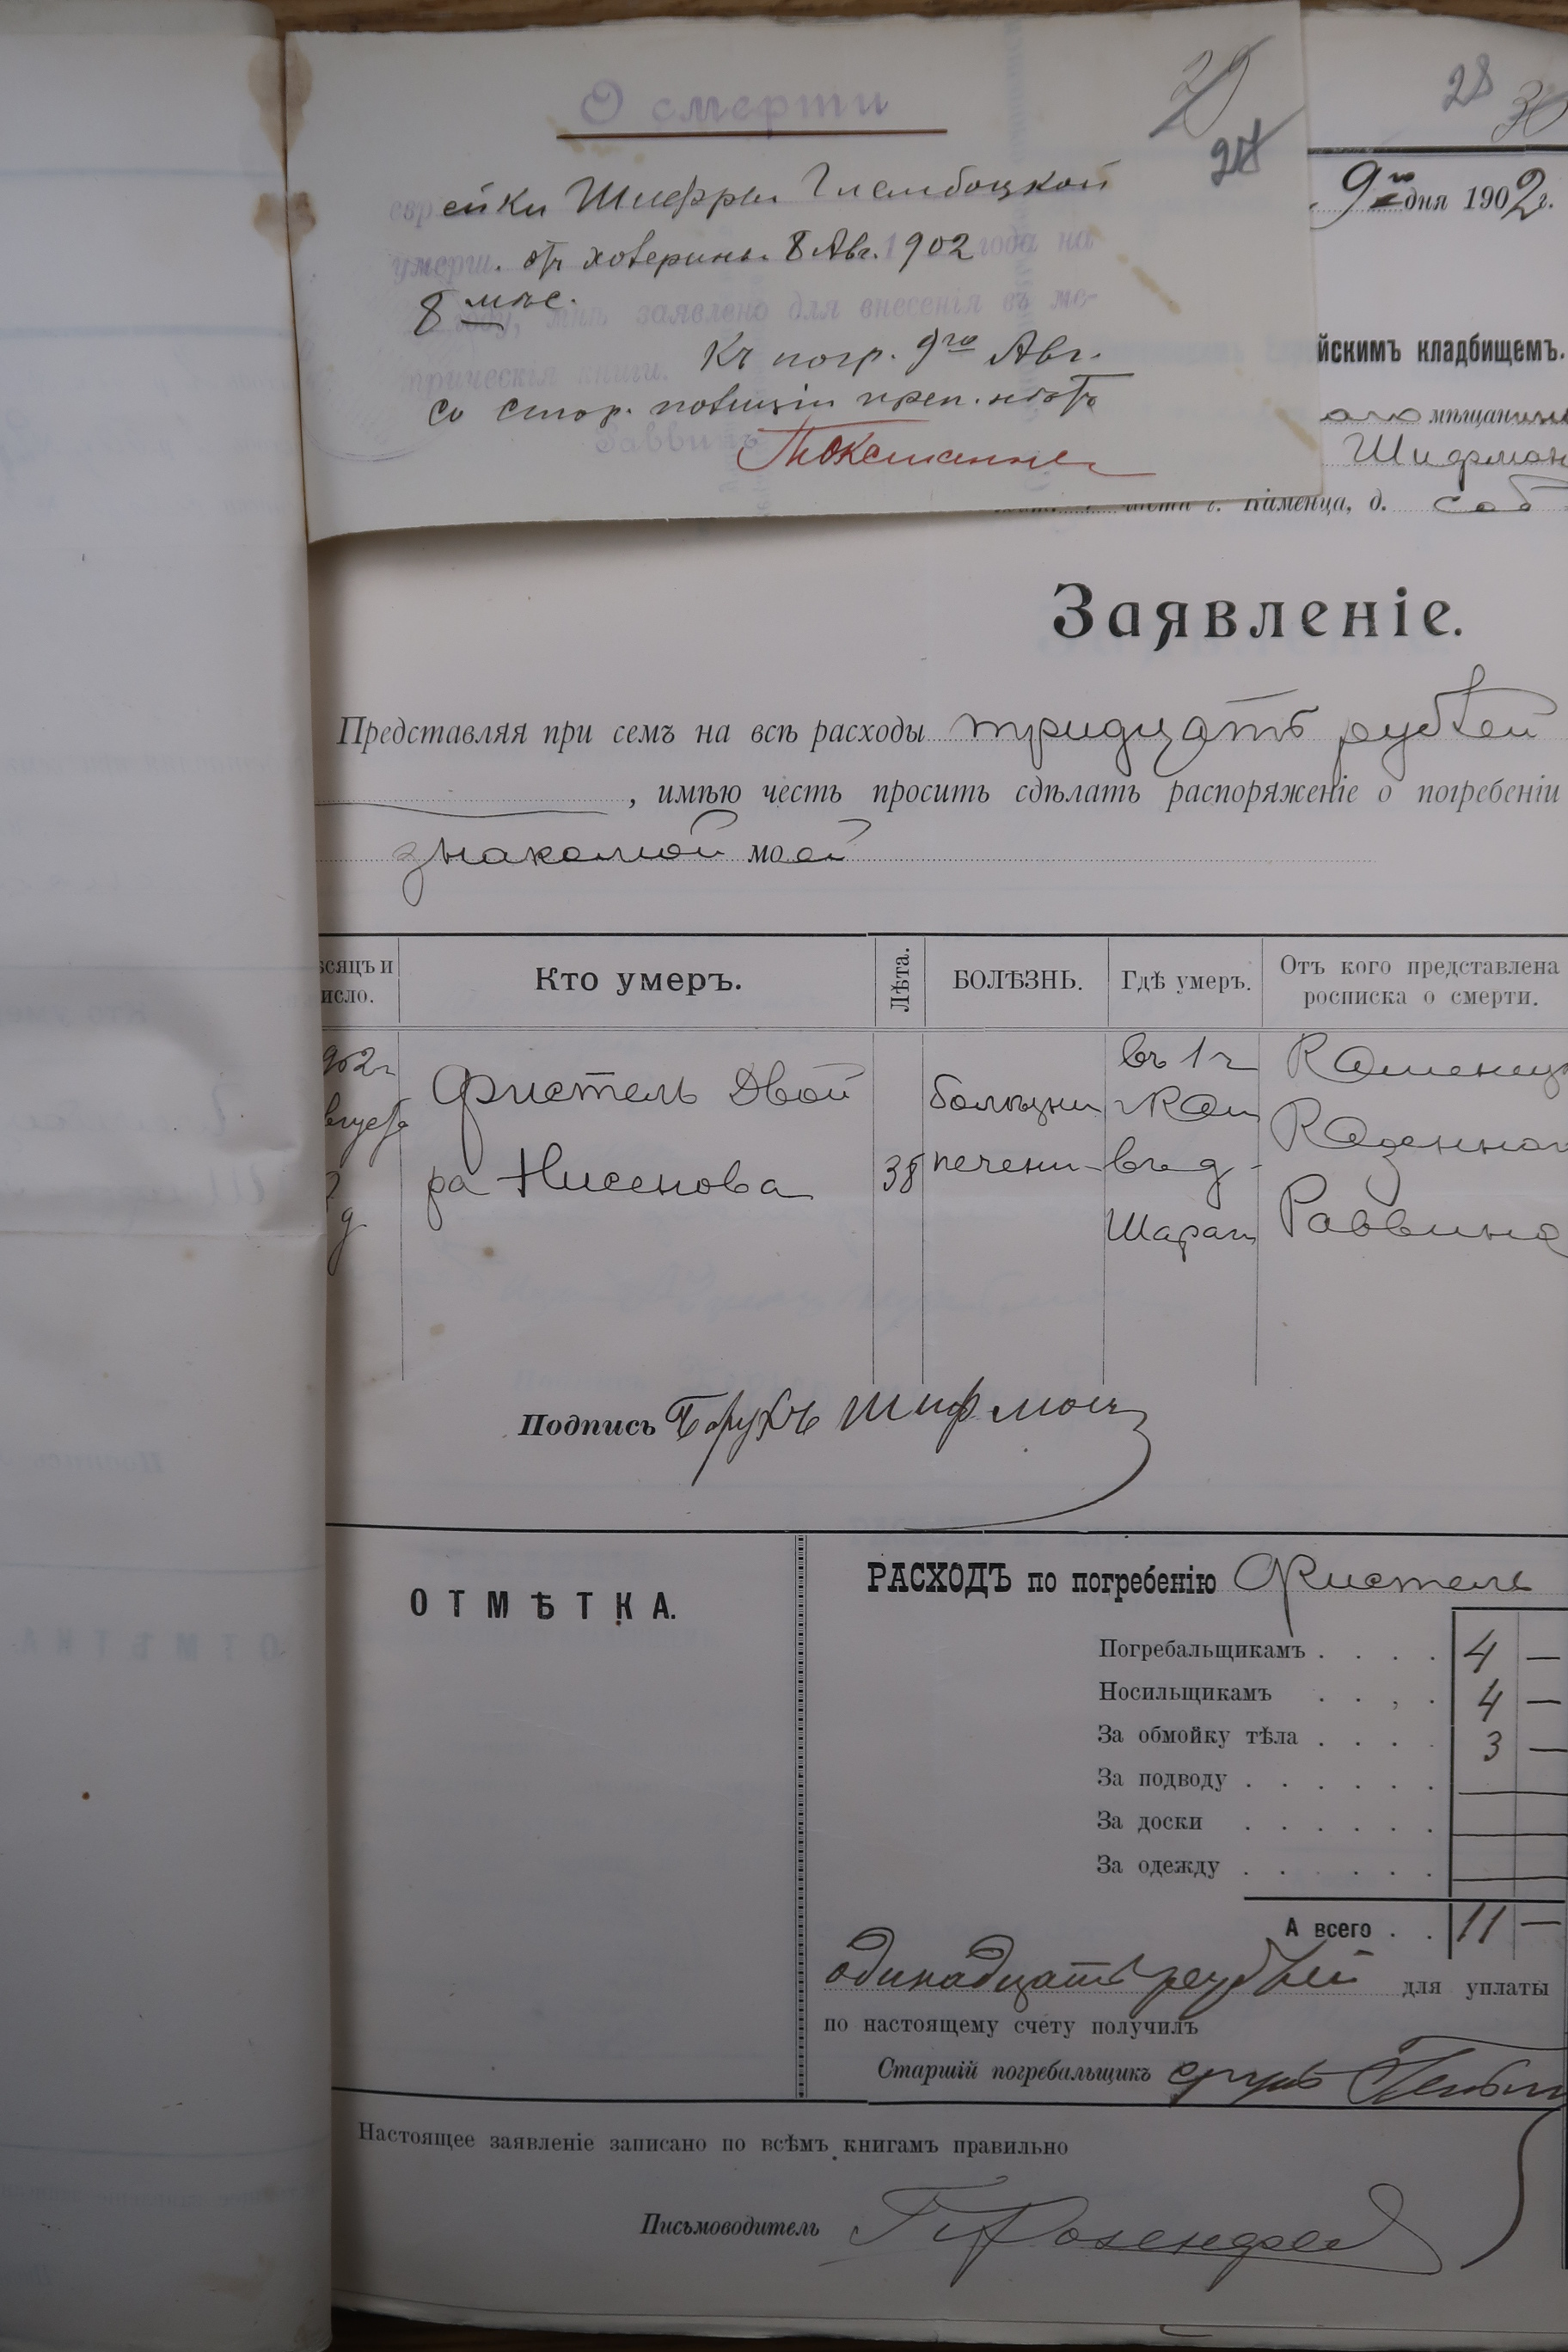 О смерти
29
27
28
30
еврейки Шифры Глембоцкой
умерш. отъ холерины 8 Авг. 1902 года на
8 мѣс.
году, мнѣ заявлено для внесенія въ ме-
трическія книги. Къ погр. 9го Авг.
со стор. полиціи преп. нѣтъ
Раввинъ
9го дня 1902 г.
йскимъ кладбищемъ.
мѣщанина
Шифман
части г. Каменца, д. соб
Заявленіе.
Представляя при семъ на всѣ расходы тридцать рублей
, имѣю честь просить сдѣлать распоряженіе о погребеніи
знакомой моей
ѣсяцъ и число. Кто умеръ. Лѣта. БОЛѢЗНЬ. Гдѣ умеръ. Отъ кого представлена росписка о смерти.
902 г въ 1 ч Каменец
вгуста Фистель Двой болѣзни г Кам Казенного
ра Нисенова 38 печени въ д
Шарап Раввина
Подпись Брухъ Шифман
ОТМѢТКА.
РАСХОДЪ по погребенію Фистель
Погребальщикамъ . . . . 4 —
Носильщикамъ . . . . 4 —
За обмойку тѣла . . . . 3 —
За подводу . . . . . .
За доски . . . . . .
За одежду . . . . . .
А всего . . 11 —
одинадцать рублей для уплаты
по настоящему счету получилъ
Старшій погребальщикъ
Настоящее заявленіе записано по всѣмъ книгамъ правильно
Письмоводитель Розенфел